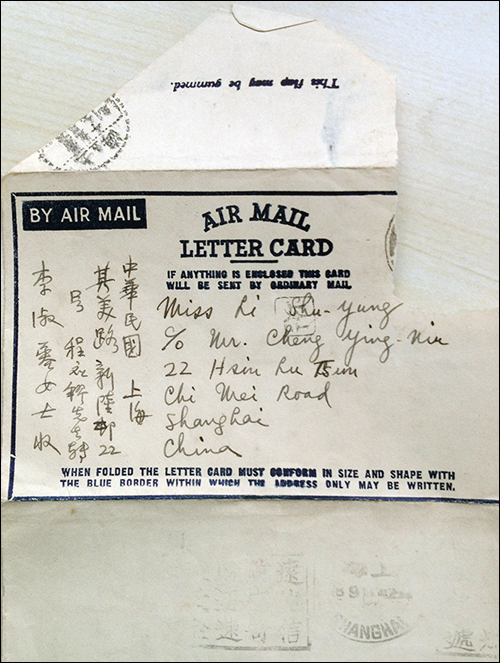 This flap may be gummed.
BY AIR MAIL
AIR MAIL
LETTER CARD
IF ANYTHING IS ENCLOSED THIS CARD
WILL BE SENT BY ORDINARY MAIL
Miss Li Shu-yung
c/o Mr. Cheng Ying-Niu
22 Hsin Lu Tsun
Chi Mei Road
Shanghai
China
中華民國 上海
其美路新陸邨22
号程先生轉
李淑女士收
WHEN FOLDED THE LETTER CARD MUST CONFORM IN SIZE AND SHAPE WITH
THE BLUE BORDER WITHIN WHICH THE ADDRESS ONLY MAY BE WRITTEN.
上海
SHANGHAI